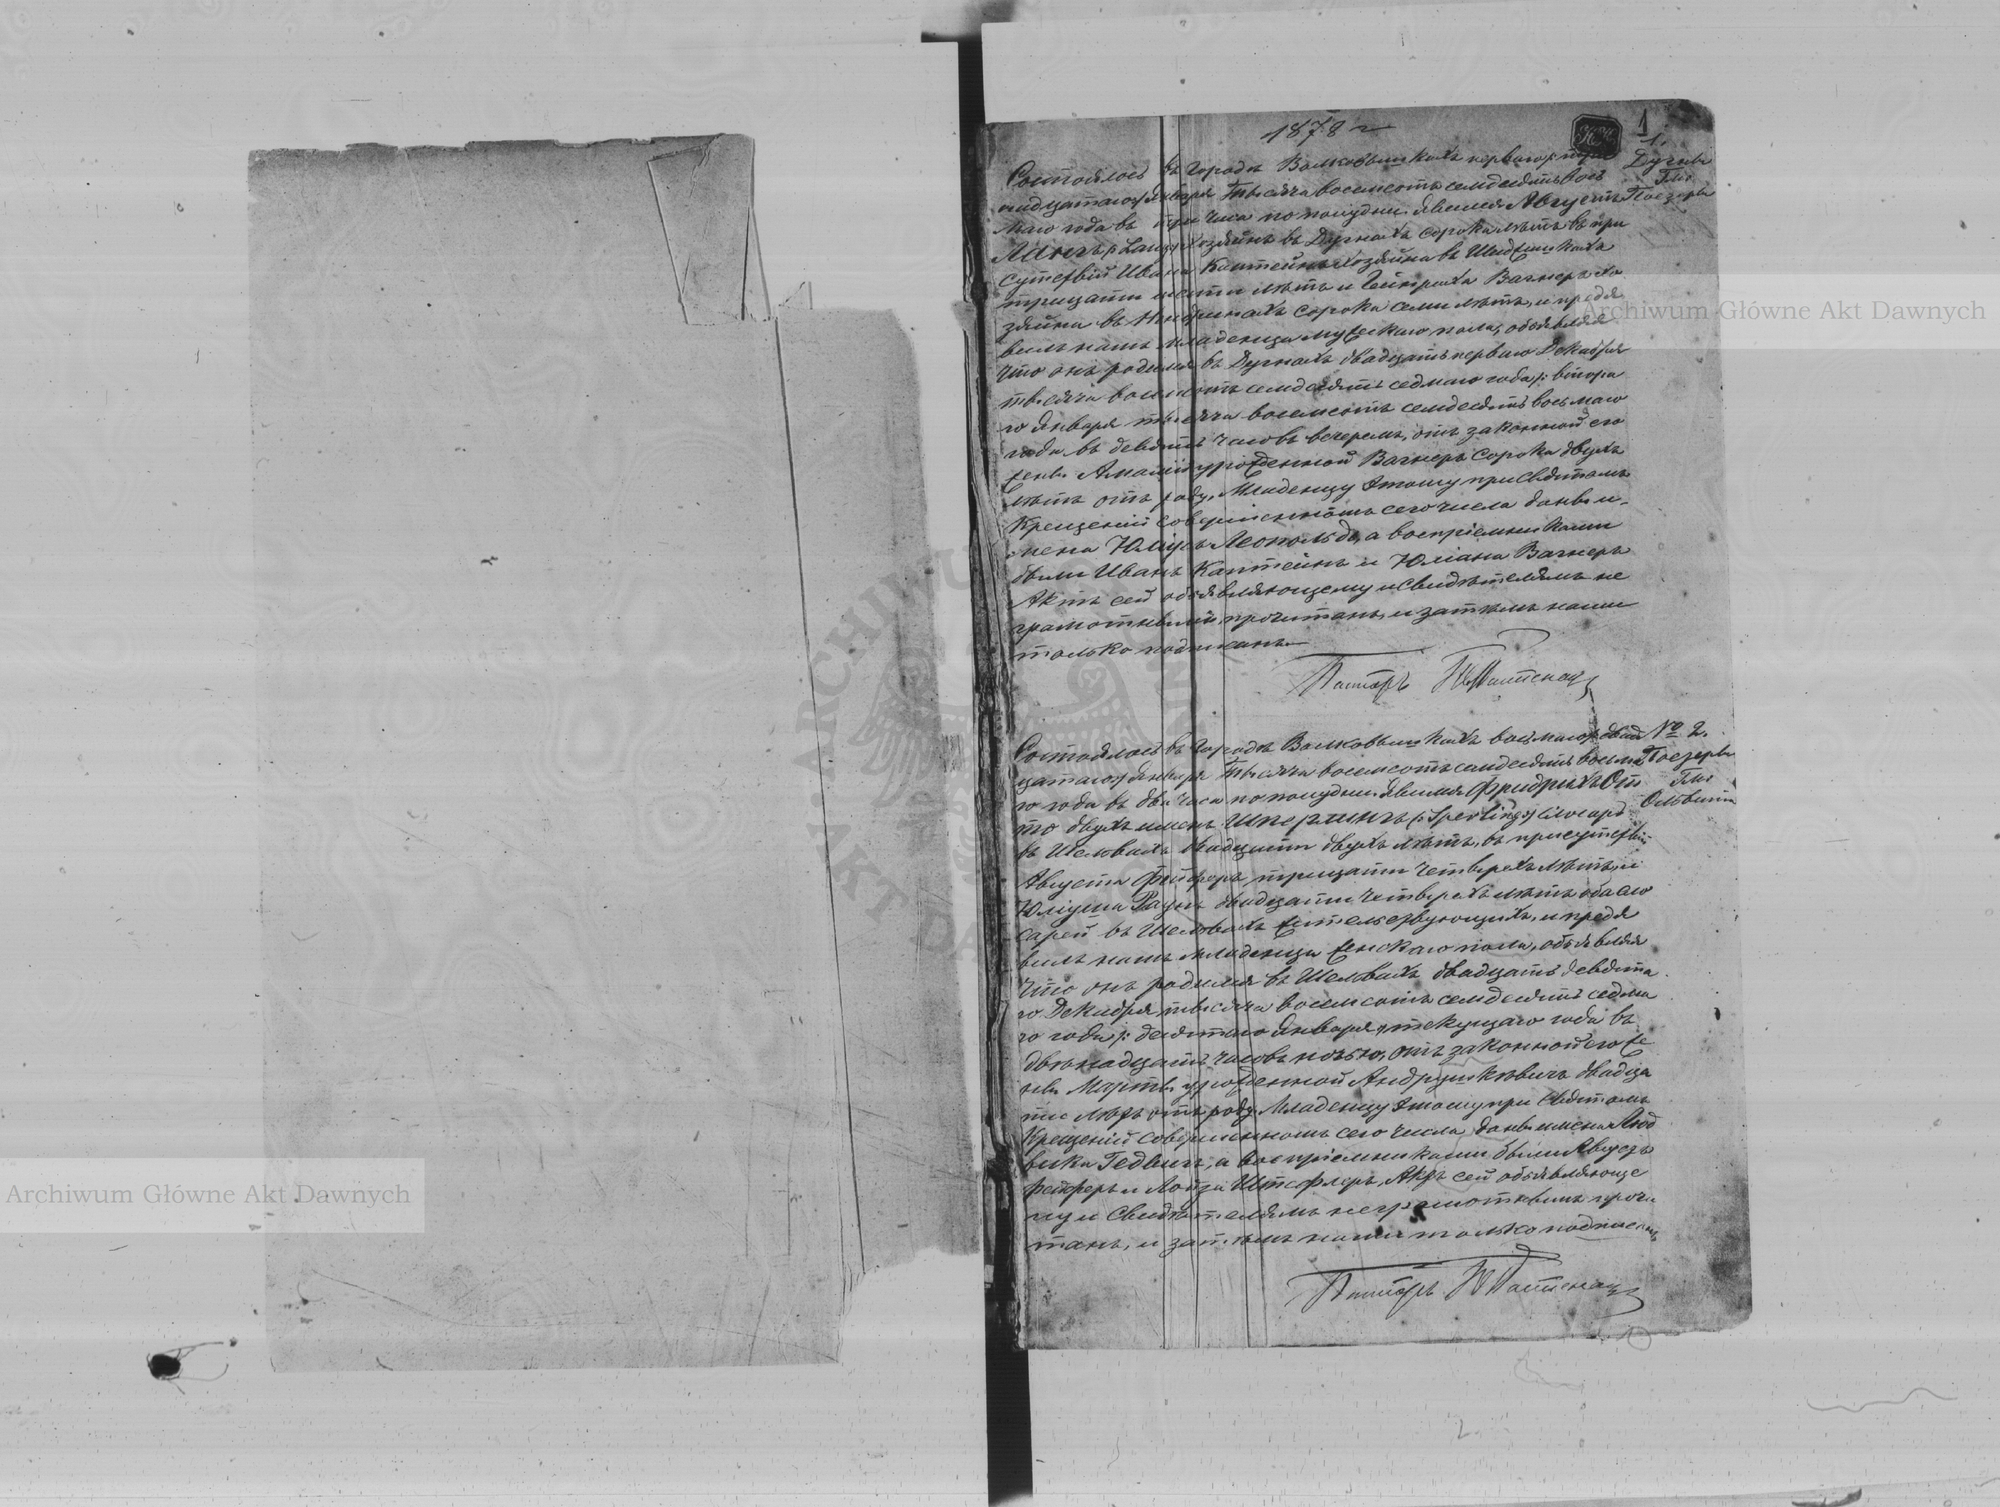 1878 г
1
1.
Дугне
Гми
Поезеры
Состоялось въ городѣ Волковышкахъ перваго/три
надцатаго/ Января тысяча восемсотъ семдесятъ вось
маго года въ три часа по полудни. Явился Августъ
Хозяинъ въ Дугнахъ сорока лѣтъ въ при
сутствіи Ивана Каптейнъ хозяина въ
тридцати шести лѣтъ и Гейнриха Вагнеръ хо
зяина въ сорока семи лѣтъ, и предъя
вилъ намъ младенца мужескаго пола, объявляя
что онъ родился въ Дугнахъ двадцать перваго Декабря
тысяча восемсотъ семдесятъ седмаго года /: втора
го Января тысяча восемсотъ семдесятъ восьмаго
года въ девять часовъ вечеромъ, отъ законной его
жены Амаліи урожденной Вагнеръ сорока двухъ
лѣтъ отъ роду. Младенцу этому при Святомъ
Крещеніи совершенномъ сего числа даны и-
мена Юліусъ Леопольдъ, а воспріемниками
были Иванъ Каптейнъ и Юліана Вагнеръ
Актъ сей объявляющему и свидѣтелямъ не
грамотнымъ прочитанъ, и затѣмъ нами
только подписанъ
Пасторъ
Состоялось въ городѣ Волковышкахъ восьмаго/двад
цатаго/ Января тысяча восемсотъ семдесятъ восьма
го года въ два часа по полудни. Явился Фридрихъ От
то двухъ именъ Шперлингъ /: Sperling :/ слесарь
въ Шелвахъ двадцати двухъ лѣтъ, въ присутствіи
Августа тридцати четырехъ лѣтъ, и
Юліуша двадцати четырехъ лѣтъ оба сле
сарей въ Шелвахъ жительствующихъ, и предъя
вилъ намъ младенца женскаго пола, объявляя
что онъ родился въ Шелвахъ двадцать девята
го Декабря тысяча восемсотъ семдесятъ седма
го года /: десятаго Января текущаго года въ
двѣнадцать часовъ ночью, отъ законной его же
ны Марты урожденной Андрушкевичъ двадца
ти лѣтъ отъ роду. Младенцу этому при Святомъ
Крещеніи совершенномъ сего числа даны имена Люд
вика Гедвигъ, а воспріемниками были Августъ
и Луиза Актъ сей объявляюще
му и свидѣтелямъ неграмотнымъ прочи
танъ, и затѣмъ нами только подписанъ
№ 2.
Поезеры
Гми
Ольвита
Пасторъ
Archiwum Główne Akt Dawnych
Archiwum Główne Akt Dawnych